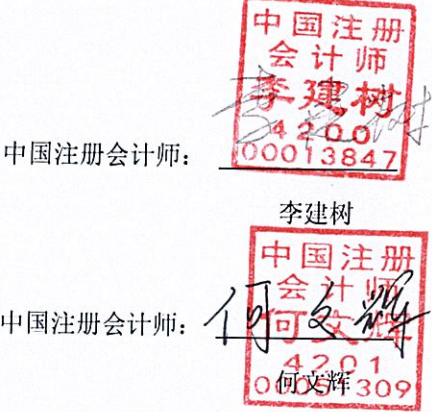 中国注册
会计师
李建树
4200
00013847
中国注册会计师：
李建树
中国注册
会计师
何文辉
4201
中国注册会计师：
何文辉